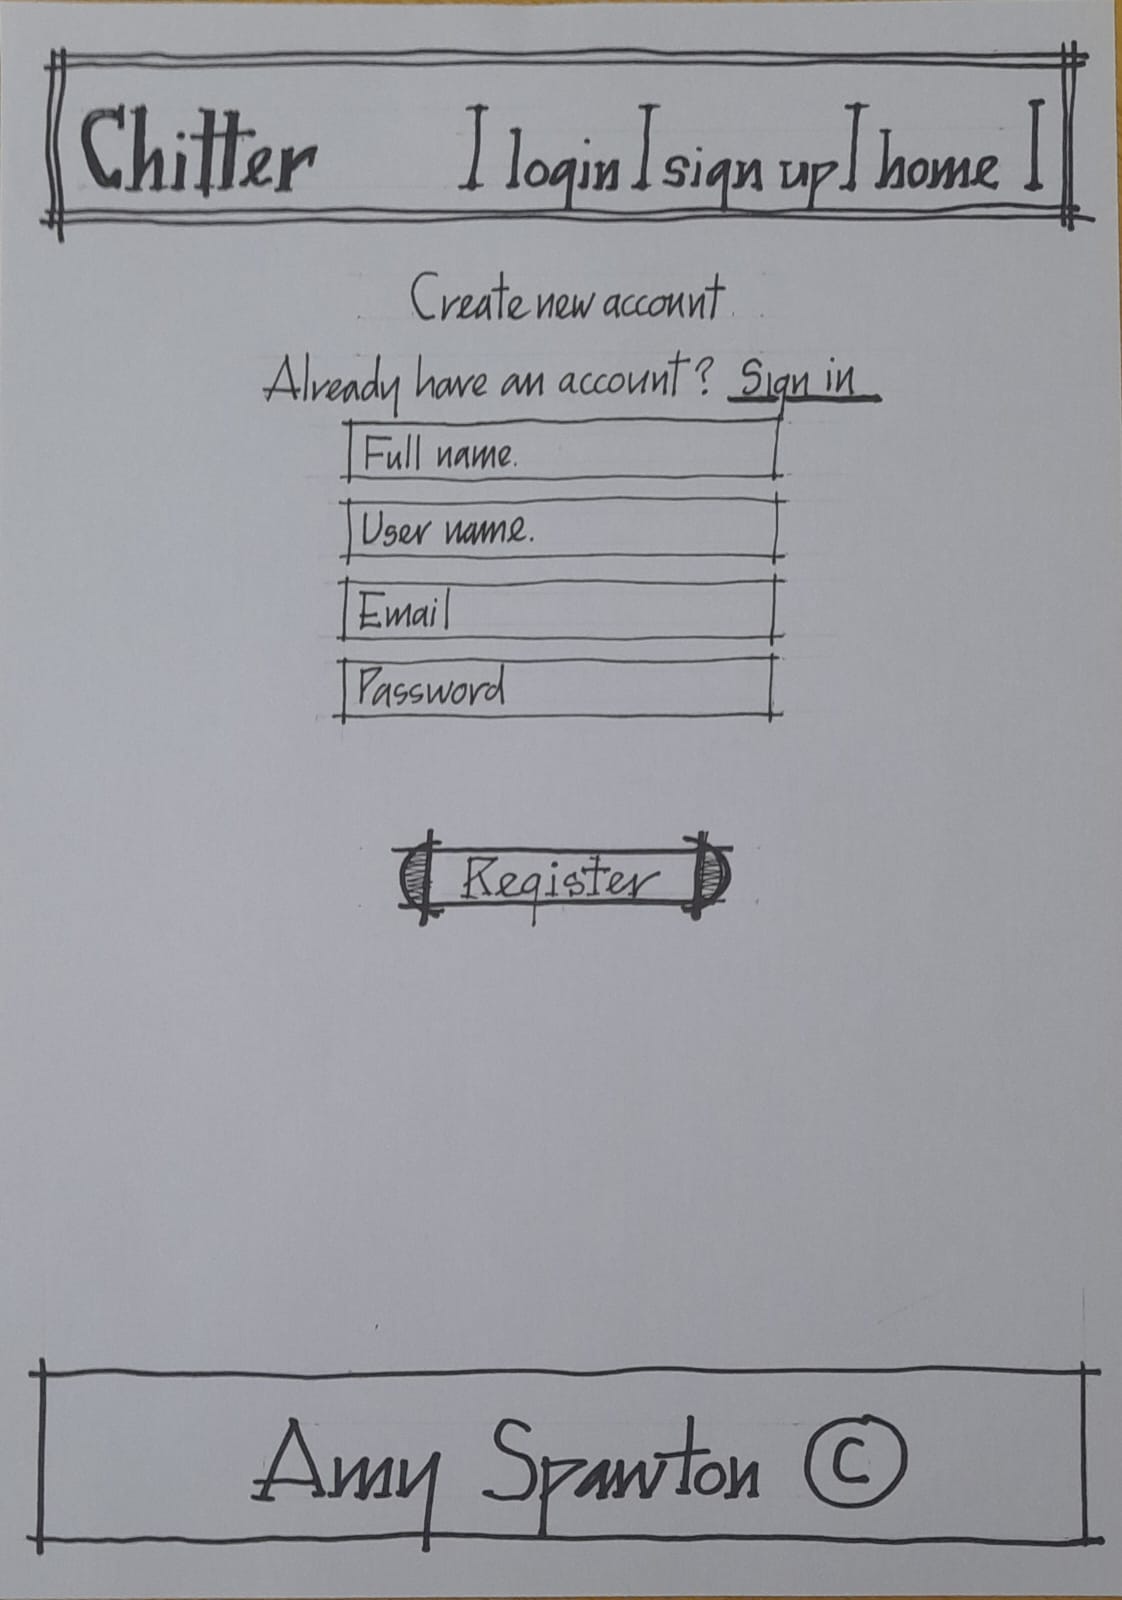 Chitter | login | sign up | home |
Create new account
Already have an account? Sign in
Full name.
User name.
Email
Password
Register
Amy Spawton ©